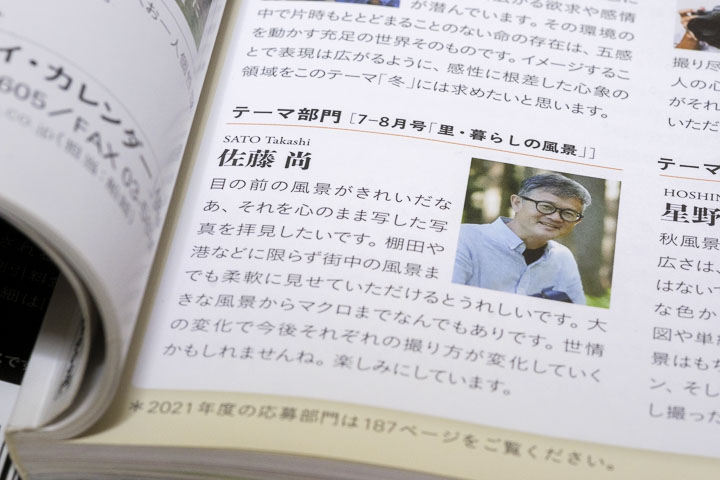 が潜んでいます。その環境の
中で片時もとどまることのない命の存在は、五感
を動かす充足の世界そのものです。イメージするこ
とで表現は広がるように、感性に根差した心象の
領域をこのテーマ「冬」には求めたいと思います。
テーマ部門 [7–8月号「里・暮らしの風景」]
SATO Takashi
佐藤 尚
目の前の風景がきれいだな
あ、それを心のまま写した写
真を拝見したいです。棚田や
港などに限らず街中の風景ま
でも柔軟に見せていただけるとうれしいです。大
きな風景からマクロまでなんでもありです。世情
の変化で今後それぞれの撮り方が変化していく
かもしれませんね。楽しみにしています。
*2021年度の応募部門は187ページをご覧ください。
イ・カレンダー
605/FAX 03-
co.jp(担当:
撮り尽
人の心
がそれ
いただ
テーマ
HOSHIN
星野
秋風景
広さは、
はないで
な色か
図や単純
景はもち
ン、そし
し撮った